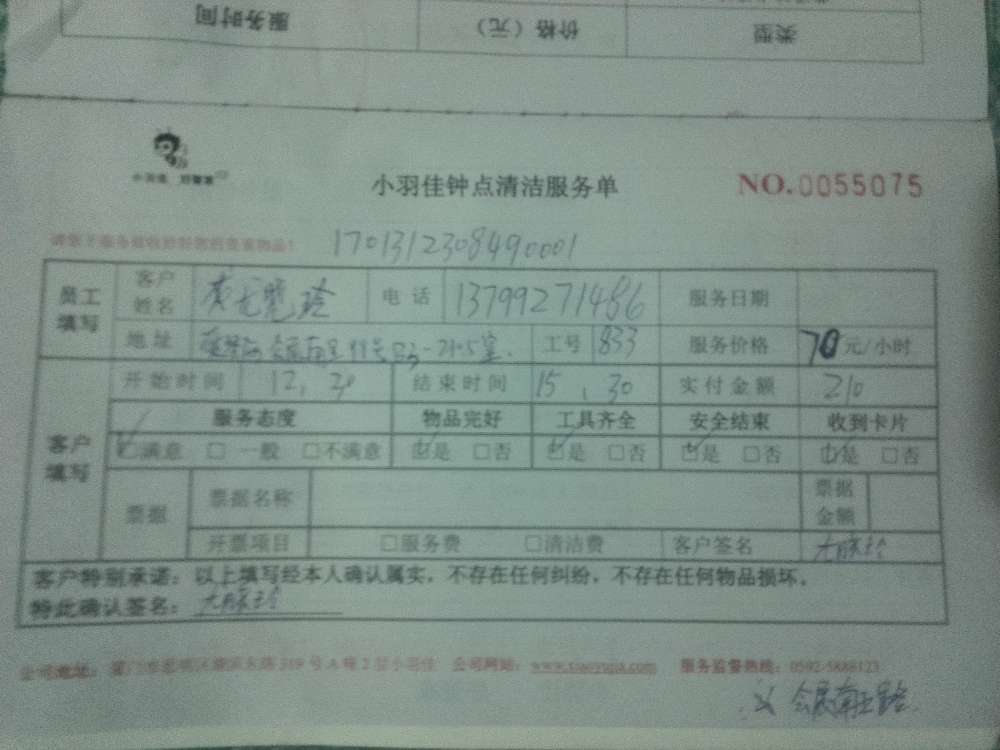 类型 价格（元） 服务时间
小羽佳
小羽佳钟点清洁服务单 NO.0055075
1701312308490001
员工填写 客户姓名 电话 13799271486 服务日期
地址 工号 833 服务价格 70元/小时
客户填写 开始时间 12，30 结束时间 15，30 实付金额 210
服务态度 物品完好 工具齐全 安全结束 收到卡片
☑满意 □一般 □不满意 ☑是 □否 ☑是 □否 ☑是 □否 ☑是 □否
票据 票据名称 票据金额
开票项目 □服务费 □清洁费 客户签名
客户特别承诺：以上填写经本人确认属实，不存在任何纠纷，不存在任何物品损坏。
特此确认签名：
公司地址： 319号A栋2层小羽佳 公司网站：www.xiaoyujia.com 服务监督热线：0592-5886123